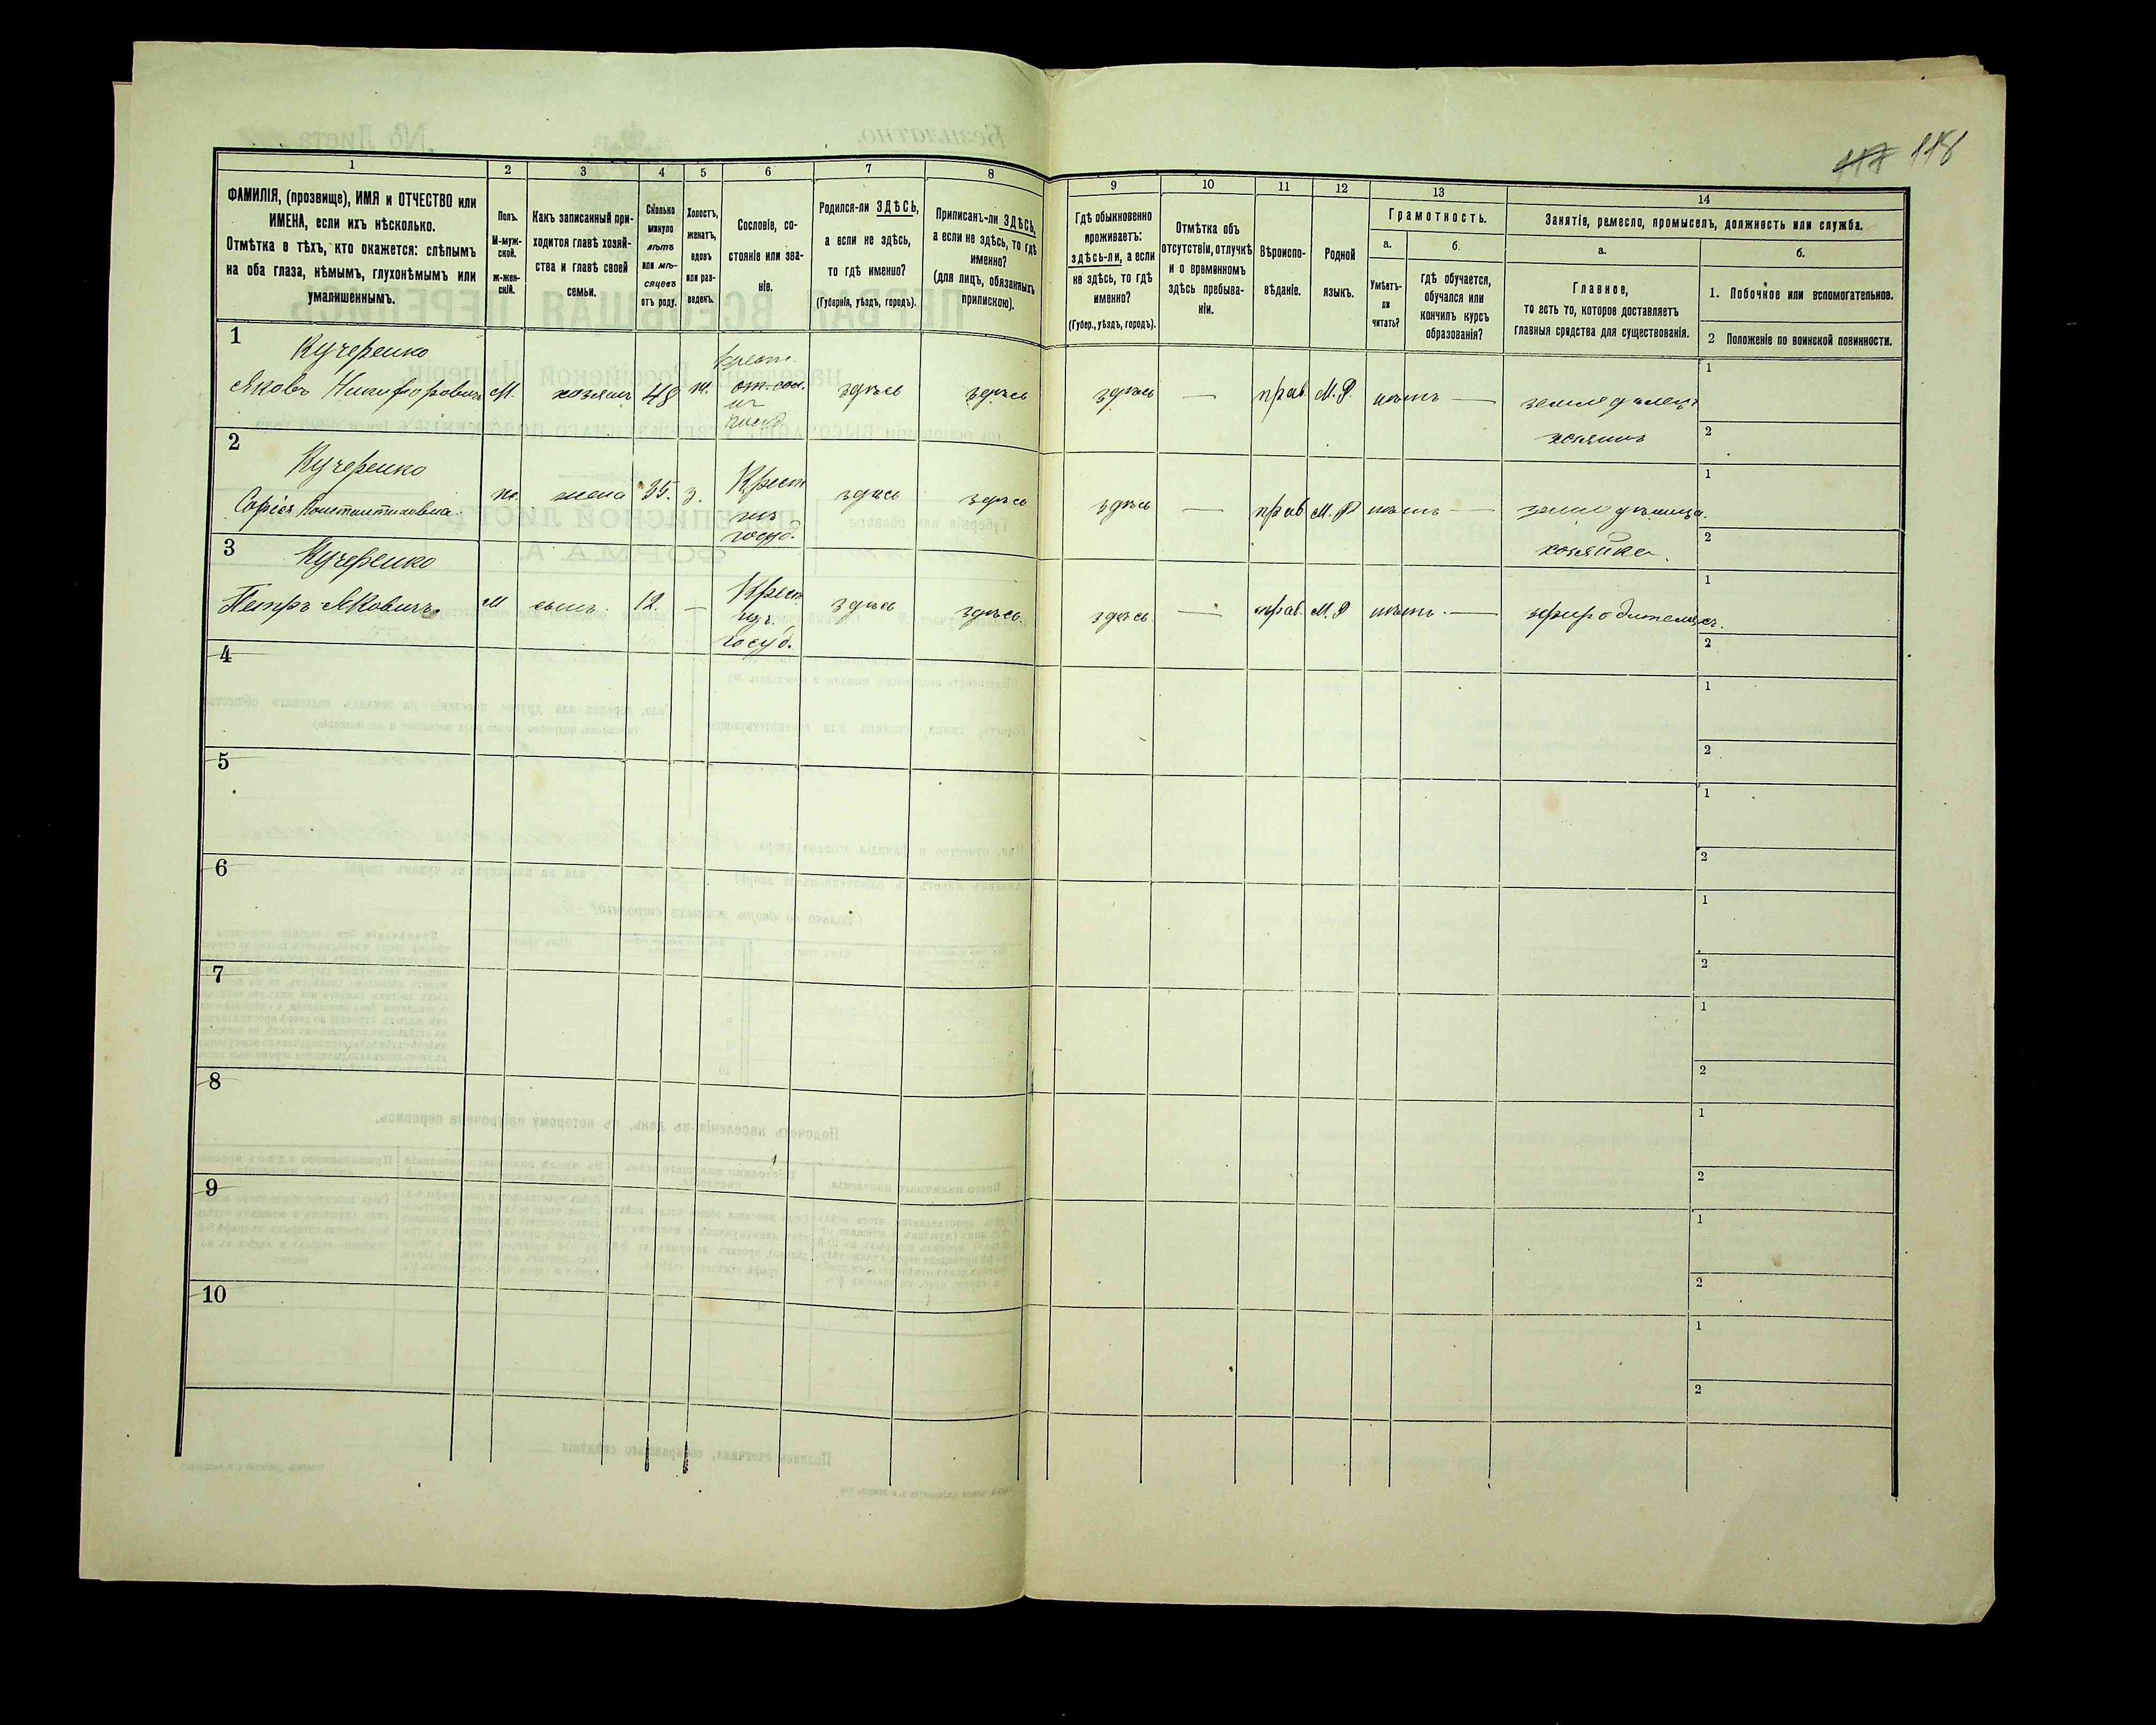 118
1
2
3
4
5
6
7
8
9
10
11
12
13
14
ФАМИЛІЯ, (прозвище), ИМЯ и ОТЧЕСТВО или
ИМЕНА, если ихъ нѣсколько.
Отмѣтка о тѣхъ, кто окажется: слѣпымъ
на оба глаза, нѣмымъ, глухонѣмымъ или
умалишеннымъ.
Полъ.
М-муж-
ской.
Ж-жен-
скій.
Какъ записанный при-
ходится главѣ хозяй-
ства и главѣ своей
семьи.
Сколько
минуло
лѣтъ
или мѣ-
сяцевъ
отъ роду.
Холостъ,
женатъ,
вдовъ
или раз-
веденъ.
Сословіе, со-
стояніе или зва-
ніе.
Родился-ли ЗДѢСЬ,
а если не здѣсь,
то гдѣ именно?
(Губернія, уѣздъ, городъ).
Приписанъ-ли ЗДѢСЬ,
а если не здѣсь, то гдѣ
именно?
(для лицъ, обязанныхъ
припискою).
Гдѣ обыкновенно
проживаетъ:
здѣсь-ли, а если
не здѣсь, то гдѣ
именно?
(Губер., уѣздъ, городъ).
Отмѣтка объ
отсутствіи, отлучкѣ
и о временномъ
здѣсь пребыва-
ніи.
Вѣроиспо-
вѣданіе.
Родной
языкъ.
Грамотность.
а.
б.
Умѣетъ-
ли
читать?
гдѣ обучается,
обучался или
кончилъ курсъ
образованія?
Занятія, ремесло, промыселъ, должность или служба.
а.
б.
Главное,
то есть то, которое доставляетъ
главныя средства для существованія.
1. Побочное или вспомогательное.
2 Положеніе по воинской повинности.
1
Кучеренко
Яковъ Никифоровичъ М. хозяинъ 48 ж.
крест.
из
госуд.
здѣсь здѣсь здѣсь — прав. М.Р. нѣтъ —
земледѣлецъ
хозяинъ
1
2
2
Кучеренко
Софія Константиновна ж. жена 35. з.
Крест
изъ
госуд.
здѣсь здѣсь здѣсь — прав М.Р нѣтъ —
хозяйка.
1
2
3
Кучеренко
Петръ Яковичъ М сынъ. 12. —
Крест
изъ
госуд.
здѣсь здѣсь. здѣсь — прав. М.Р нѣтъ. —
1
2
4
1
2
5
1
2
6
1
2
7
1
2
8
1
2
9
1
2
10
1
2